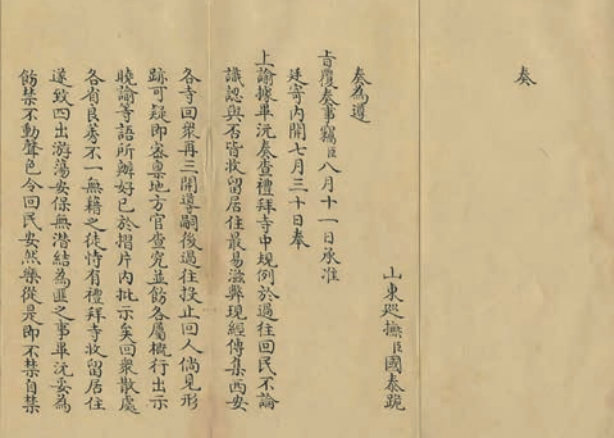 奏
山東巡撫臣國泰跪
奏為遵
旨覆奏事竊臣八月十一日承准
廷寄內開七月三十日奉
上諭據畢沅奏查禮拜寺中規例於過往回民不論
識認與否皆收留居住最易滋弊現經傳集西安
各寺回衆再三開導嗣後過往投止回人倘見形
跡可疑即密稟地方官查究並飭各屬概行出示
曉諭等語所辦好已於摺片內批示矣回衆散處
各省良莠不一無藉之徒恃有禮拜寺收留居住
遂致四出游蕩安保無潛結為匪之事畢沅妥為
飭禁不動聲色令回民安然樂從是即不禁自禁